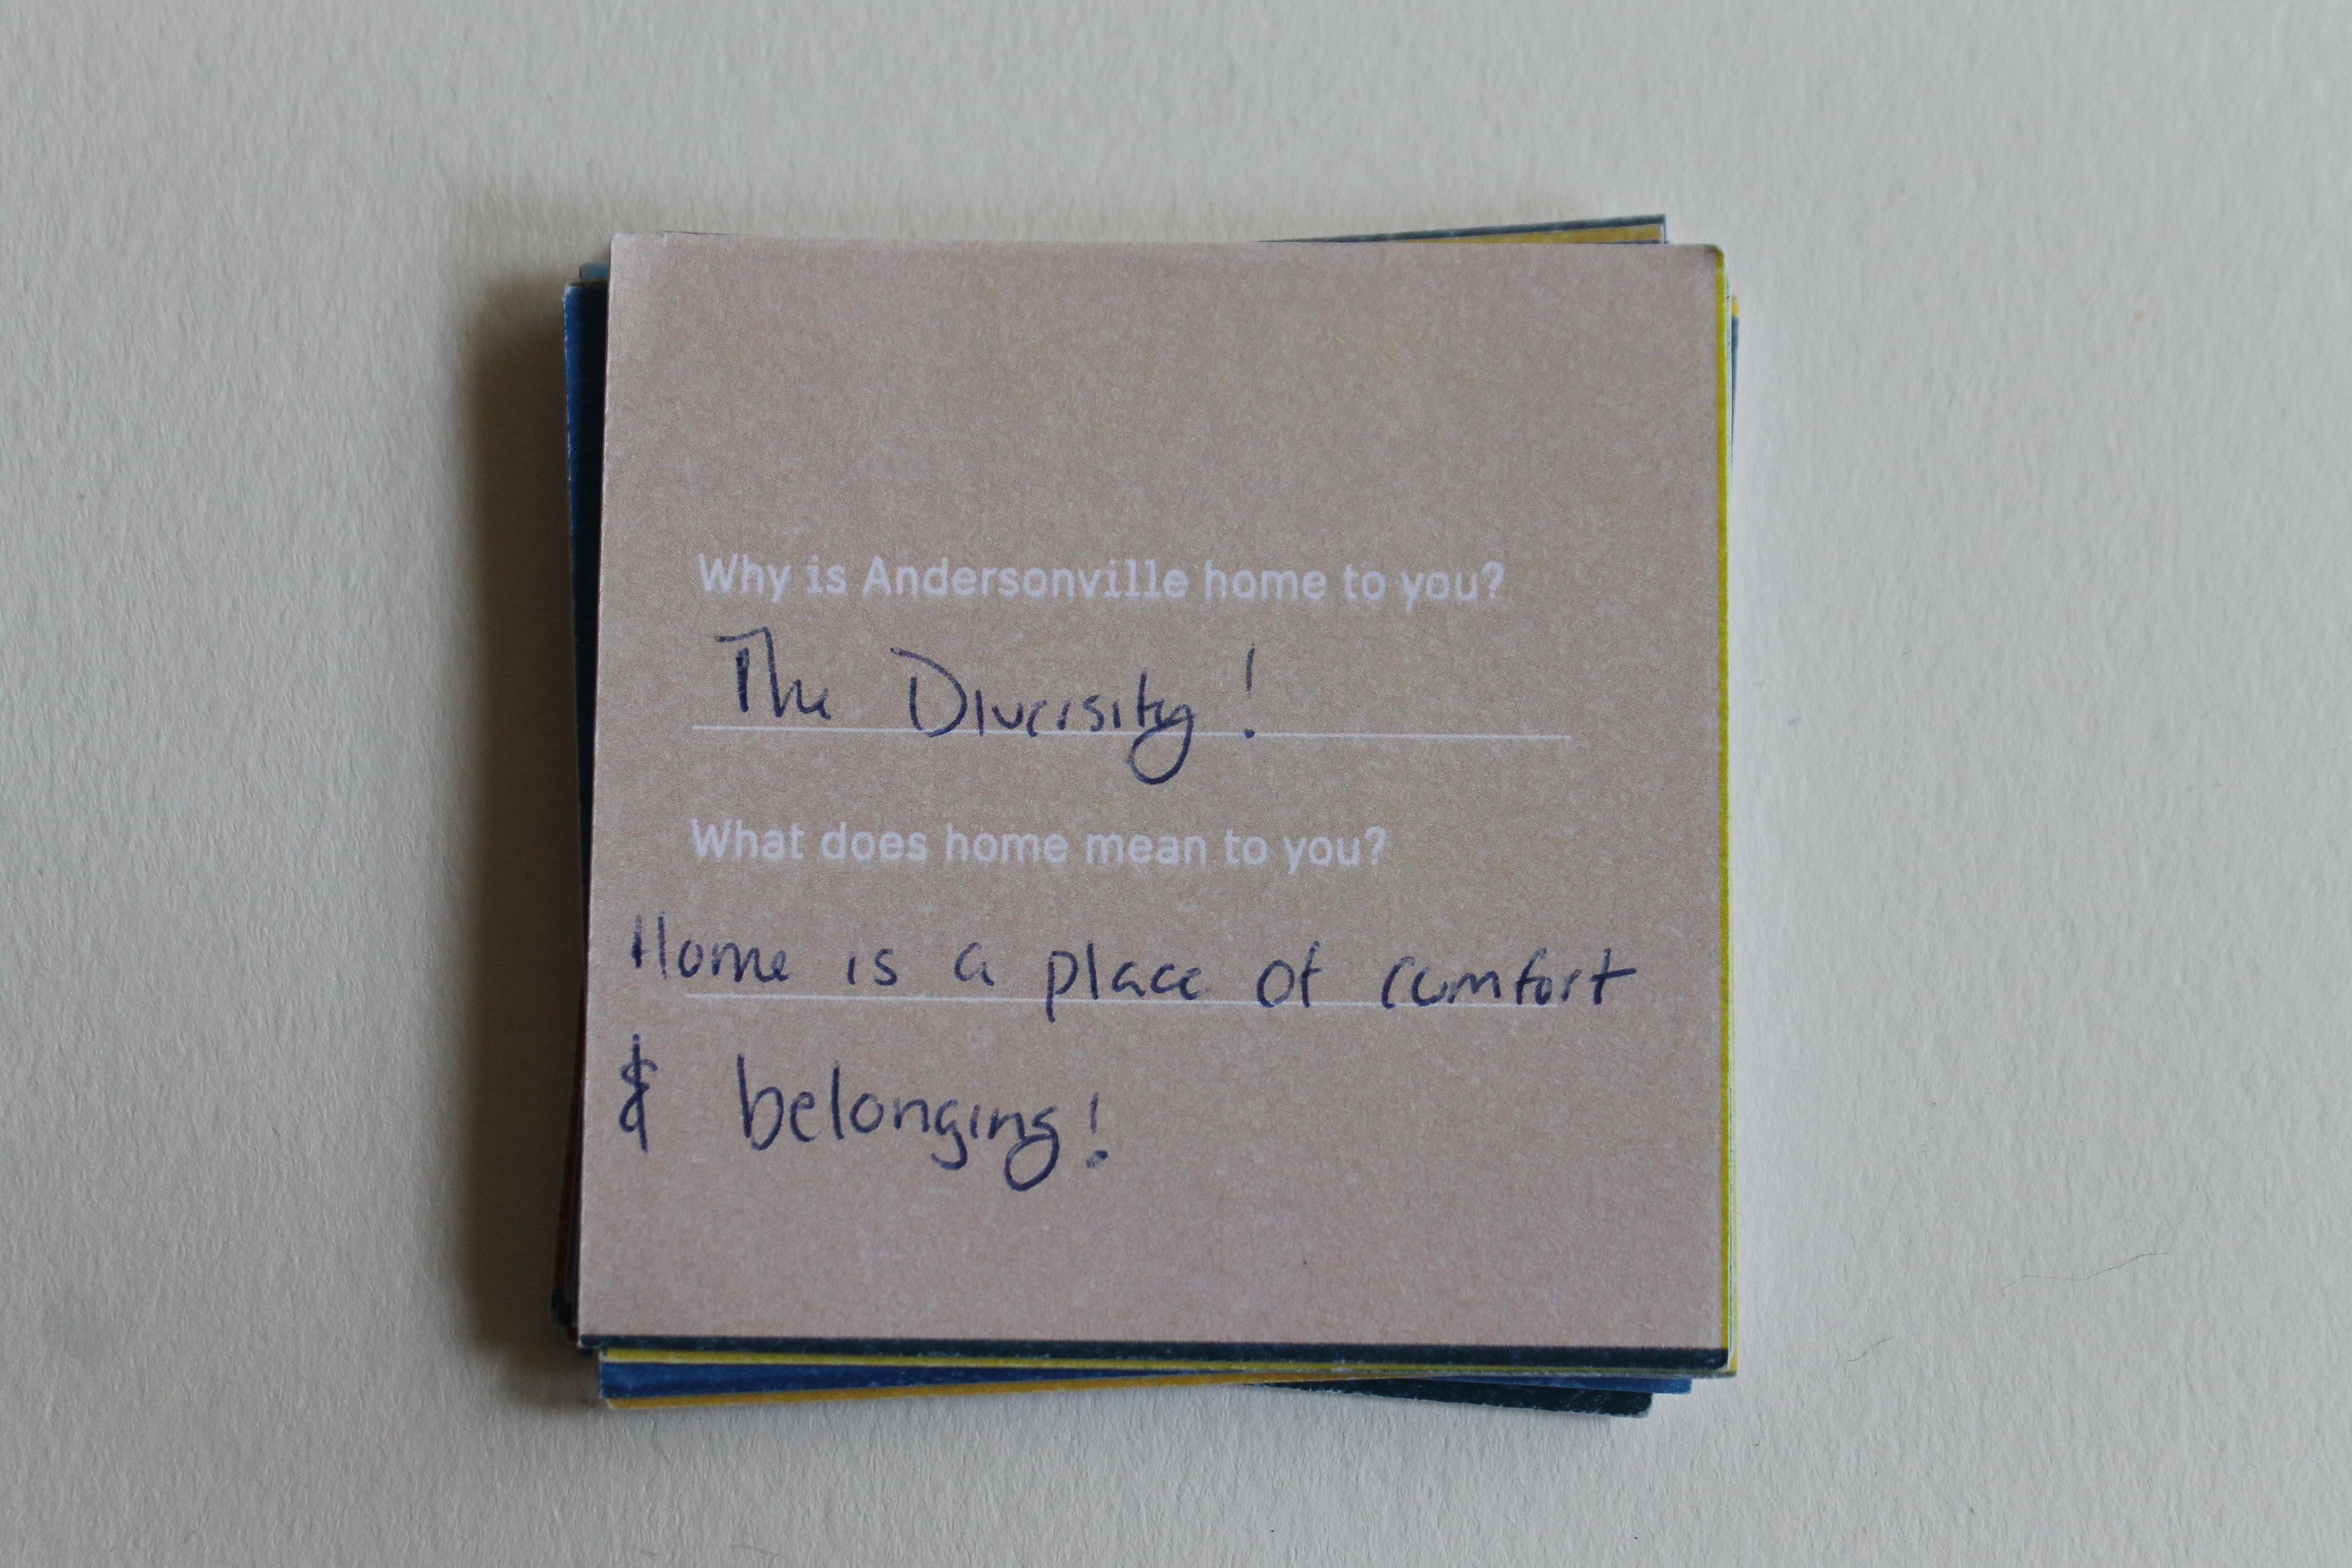 Why is Andersonville home to you?
The Diversity!
What does home mean to you?
Home is a place of comfort
& belonging!